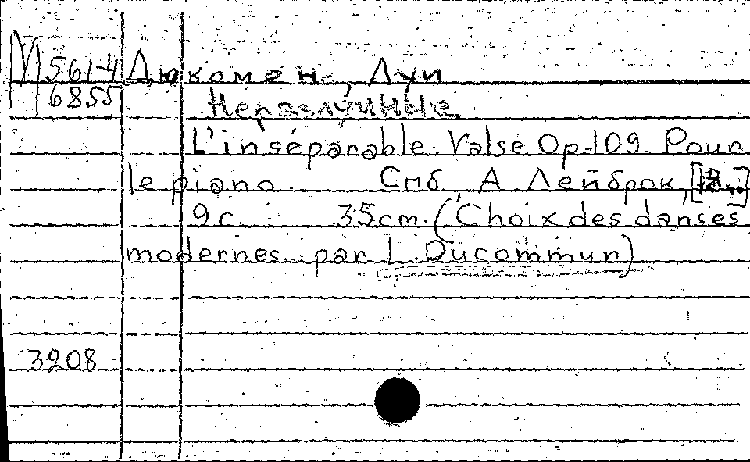 М 561-4 Дюкомен, Луи
6855 Неразлучные
L'inséparable. Valse Op-109. Pour
le piano. Спб, А. Лейброк, [18..]
9с. 35cm. (Choix des danses
modernes par L. Ducommun)
3208